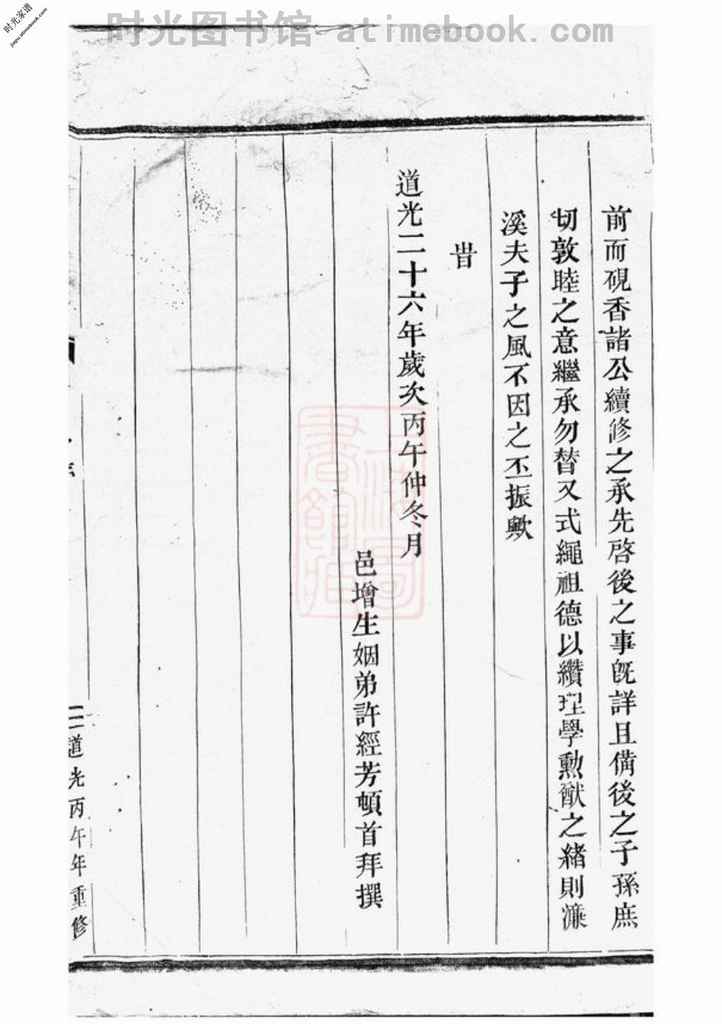 时光图书馆 - atimebook.com
时光家谱
jiapu.atimebook.com
前而硯香諸公續修之承先啓後之事既詳且備後之子孫庶
切敦睦之意繼承勿替又式繩祖德以纘理學勲猷之緒則濂
溪夫子之風不因之丕振歟
旹
道光二十六年歲次丙午仲冬月
邑增生姻弟許經芳頓首拜撰
二
道光丙午年重修